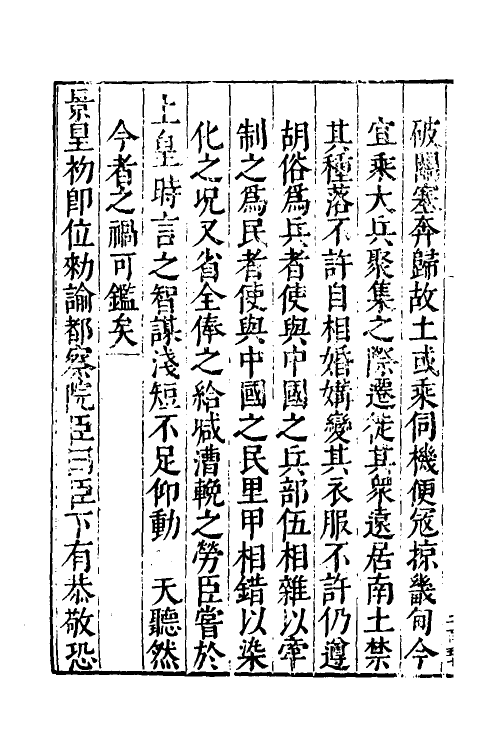 破關塞奔歸故土或乘伺機便寇掠畿甸今
宜乘大兵聚集之際遷徙其衆遠居南土禁
其種落不許自相婚媾變其衣服不許仍遵
胡俗爲兵者使與中國之兵部伍相雜以牽
制之爲民者使與中國之民里甲相錯以染
化之况又省全俸之給減漕輓之勞臣嘗於
上皇時言之智謀淺短不足仰動　天聽然
今者之禍可鑑矣
景皇初即位勑諭都察院臣曰臣下有恭敬恐